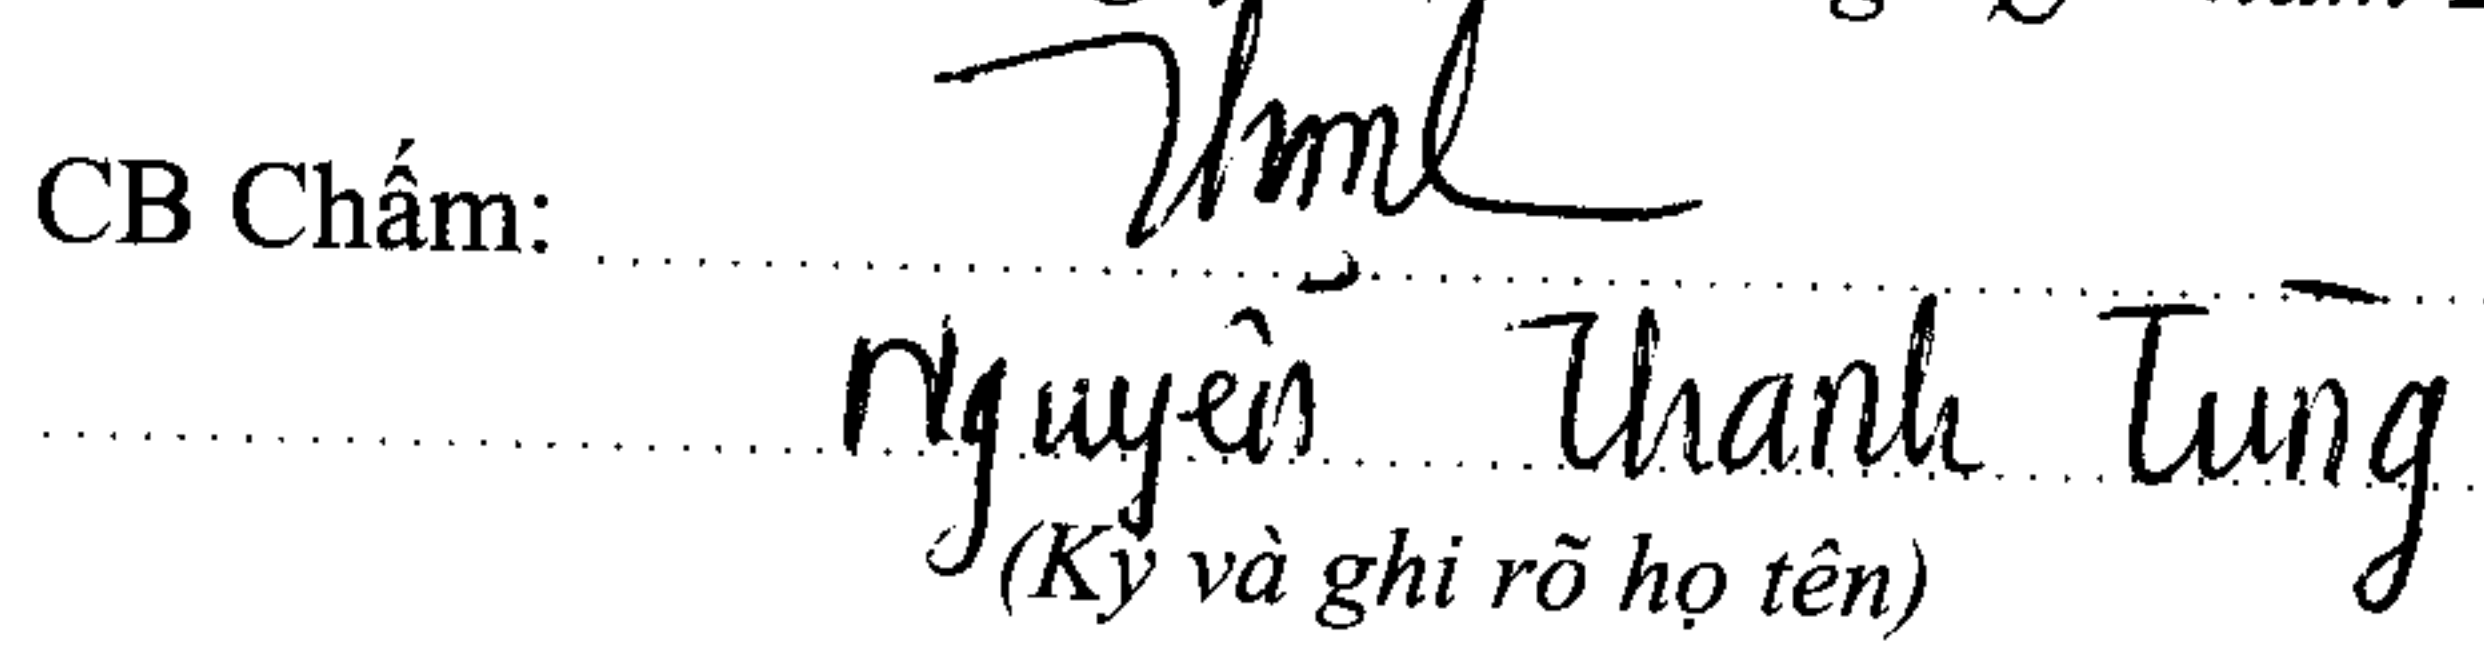 CB Chấm:
Nguyễn Thanh Tùng
(Ký và ghi rõ họ tên)